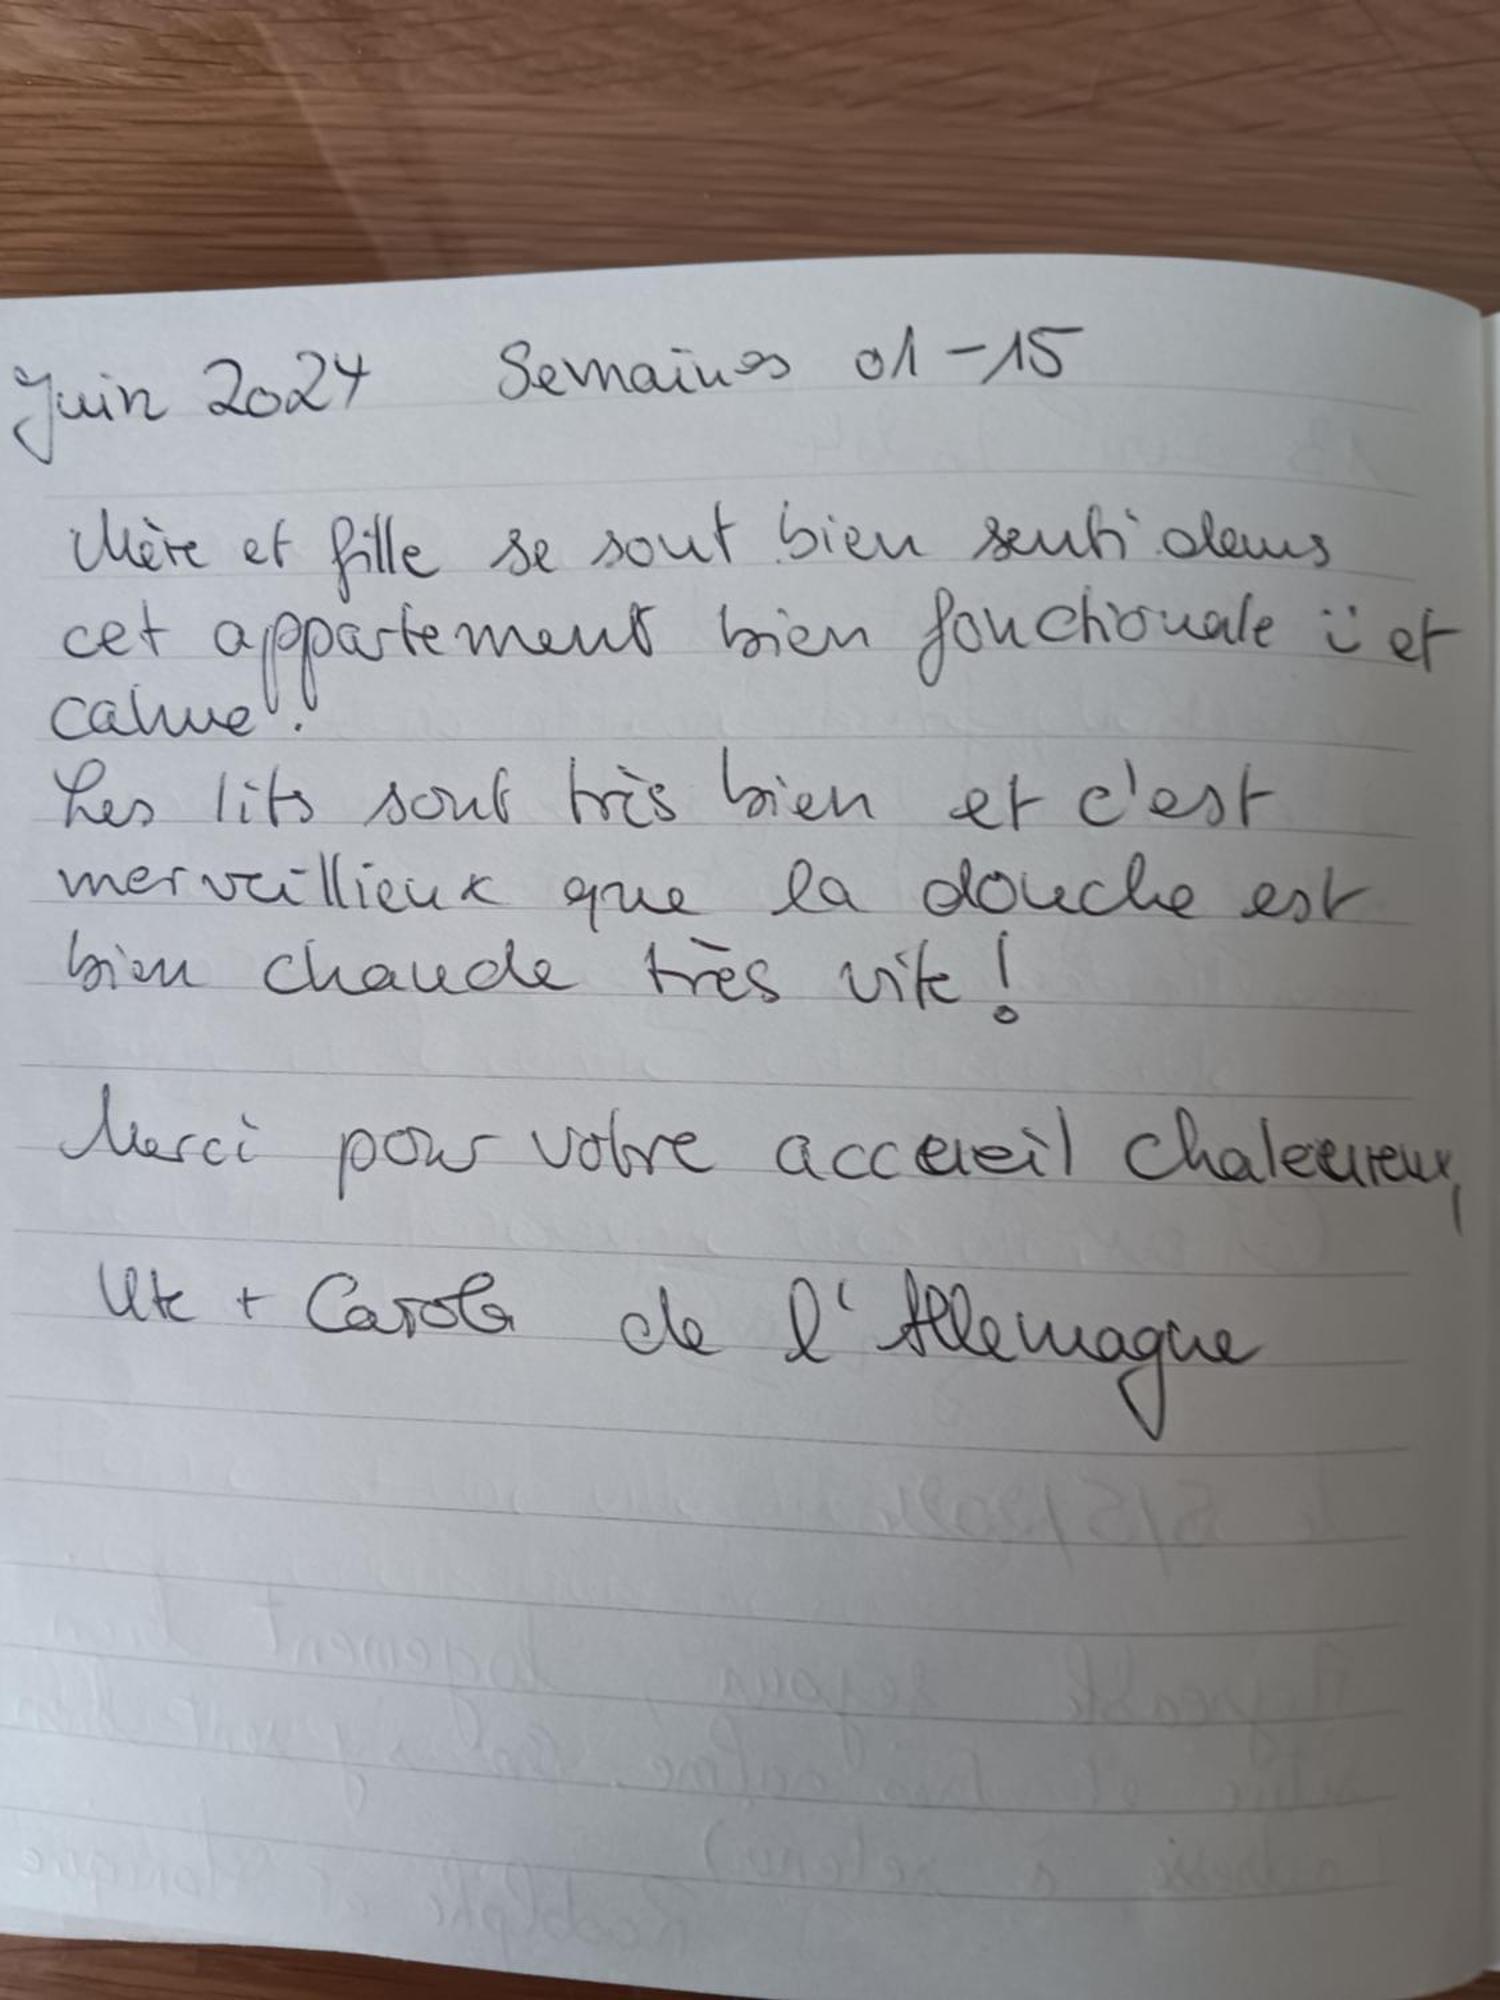 Juin 2024 Semaines 01-15
Mère et fille se sont bien senti dans
cet appartement bien fonctionale et
calme!
Les lits sont très bien et c'est
merveillieux que la douche est
bien chaude très vite!
Merci pour votre accueil chaleureux,
Ute + Carola de l'Allemagne